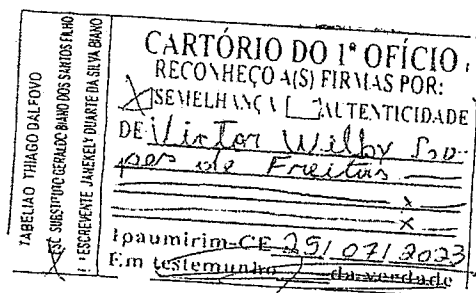 TABELIÃO THIAGO DALFOVO
ESC. SUBSTITUTO GERALDO BIANO DOS SANTOS FILHO
ESCREVENTE JANEKELY DUARTE DA SILVA BIANO
CARTÓRIO DO 1º OFÍCIO
RECONHEÇO A(S) FIRMAS POR:
SEMELHANÇA AUTENTICIDADE
DE: Victor Wilby Lo-
pes de Freitas
Ipaumirim-CE 29/07/2023
Em testemunho da verdade